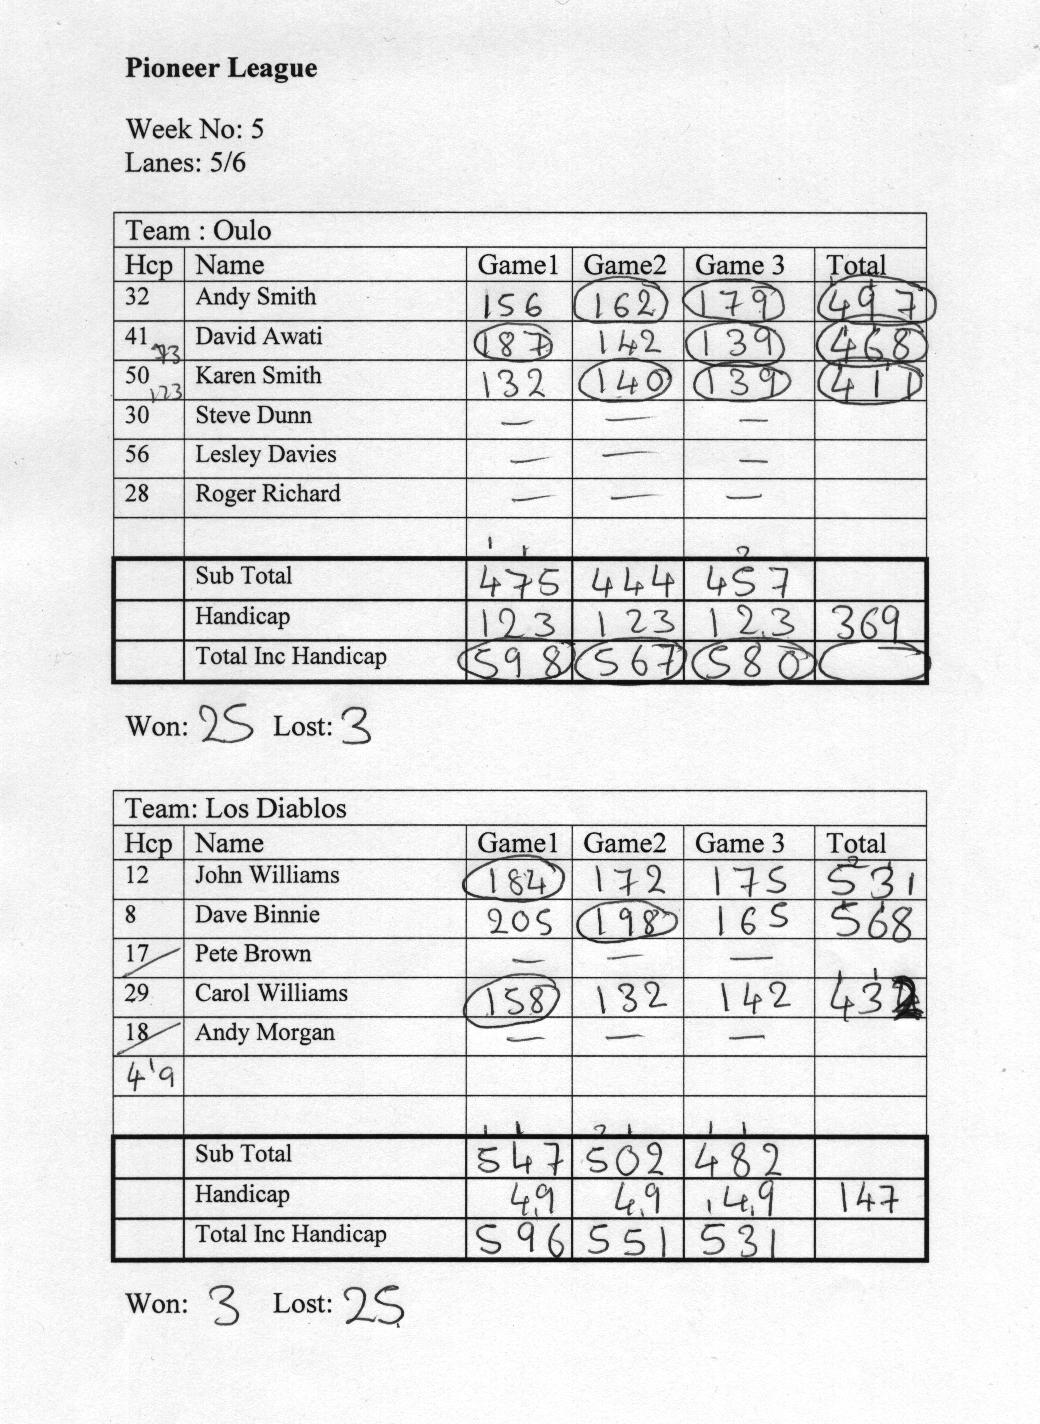 Pioneer League
Week No: 5
Lanes: 5/6
Team : Oulo
Hcp Name Game1 Game2 Game 3 Total
32 Andy Smith 156 162 179 497
41 73 David Awati 187 142 139 468
50 123 Karen Smith 132 140 139 411
30 Steve Dunn — — —
56 Lesley Davies — — —
28 Roger Richard — — —
1 1 2
Sub Total 475 444 457
Handicap 123 123 123 369
Total Inc Handicap 598 567 580
Won: 25 Lost: 3
Team: Los Diablos
Hcp Name Game1 Game2 Game 3 Total
12 John Williams 184 172 175 531
8 Dave Binnie 205 198 165 568
17 Pete Brown — — —
29 Carol Williams 158 132 142 432
18 Andy Morgan — — —
4 1 9
1 1 2 1 1 1
Sub Total 547 502 482
Handicap 49 49 49 147
Total Inc Handicap 596 551 531
Won: 3 Lost: 25